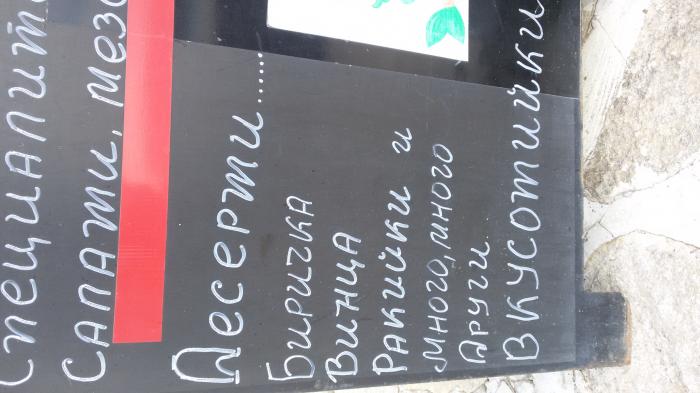 Специалит
САЛАТИ, МЕЗЕ
Десерти......
Биричка
Винца
Ракийки и
много, много
други
Вкусотийки